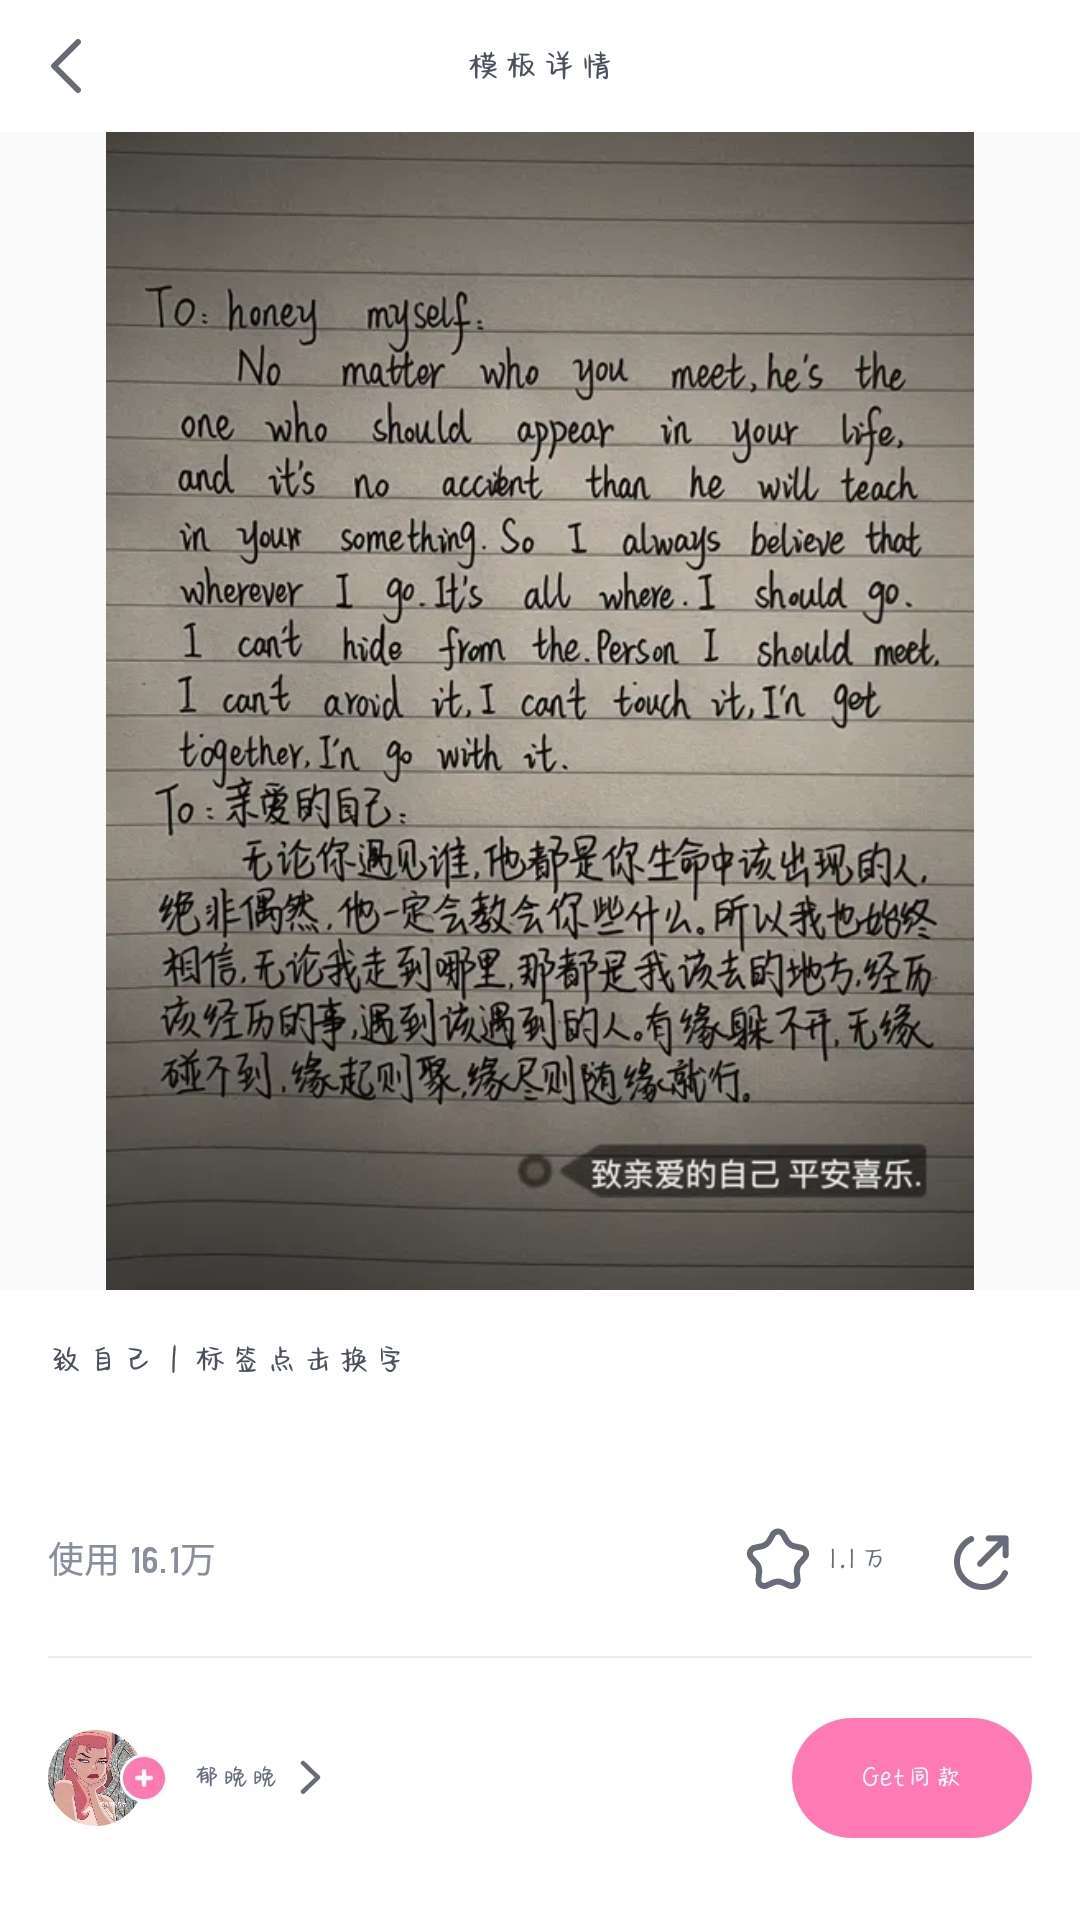 模板详情
To: honey myself:
No matter who you meet, he's the
one who should appear in your life,
and it's no accident than he will teach
in your something. So I always believe that
wherever I go. It's all where. I should go.
I can't hide from the. Person I should meet.
I can't aroid it, I can't touch it, I'n get
together, I'n go with it.
To: 亲爱的自己:
无论你遇见谁,他都是你生命中该出现的人,
绝非偶然,他一定会教会你些什么。所以我也始终
相信,无论我走到哪里,那都是我该去的地方,经历
该经历的事,遇到该遇到的人。有缘躲不开,无缘
碰不到,缘起则聚,缘尽则随缘就行。
致亲爱的自己 平安喜乐.
致自己 | 标签点击换字
使用 16.1万
1.1万
郁晚晚
Get同款